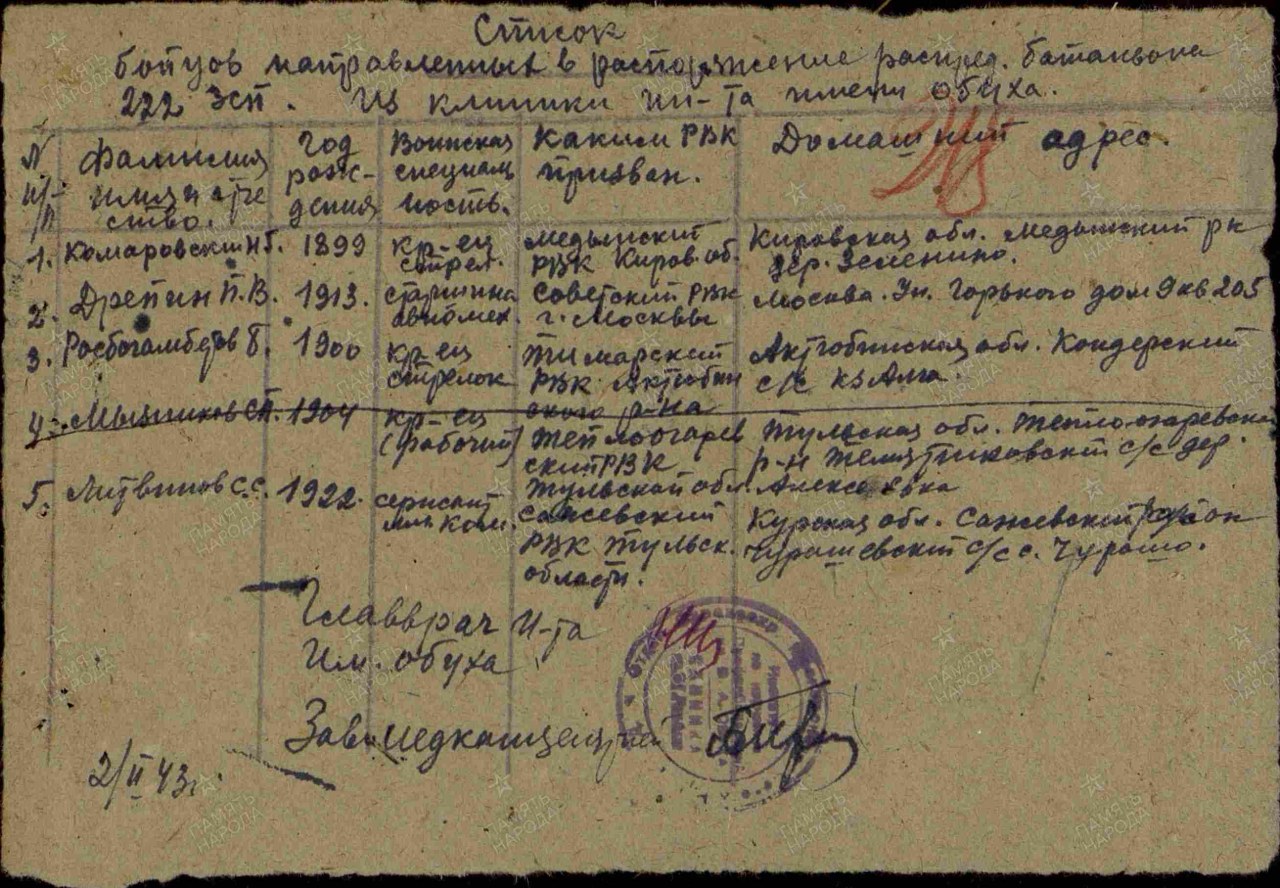 Список
бойцов направленных в распоряжение распред. батальона
222 ЗСП. Из клиники ин-та имени обуха.
N п/п
Фамилия имя и отче ство.
Год рож- дения
Воинская специаль ность.
Каким РВК призван.
Домашний адрес.
1. Комаровский Н.Г. 1899 кр-ец стрел. Медынский РВК Киров. об. Кировская обл. Медынский рн дер. Зеленино.
2. Дрепин П.В. 1913. старшина авиомех. Советский РВК г. Москвы Москва. Ул. Горького дом 9 кв 205
3. Росбогамбетов Б. 1900 кр-ец стрелок Тимарский РВК Актюбин ского р-на Актюбинская обл. Кондерский с/с кз Алга.
4. Мызников С.П. 1904 кр-ец (рабочий) Теплоогарев ский РВК Тульской обл. Тульская обл. Тепло-огаревская р-н с/с дер.
5. Литвинов С.С. 1922. сержант Сажевский РВК Тульск. области. Курская обл. Сажевский район Чурашевский с/с с. Чурашо.
Главврач И-та
Им. обуха
Зав.
2/II 43г.
ПАМЯТЬ НАРОДА